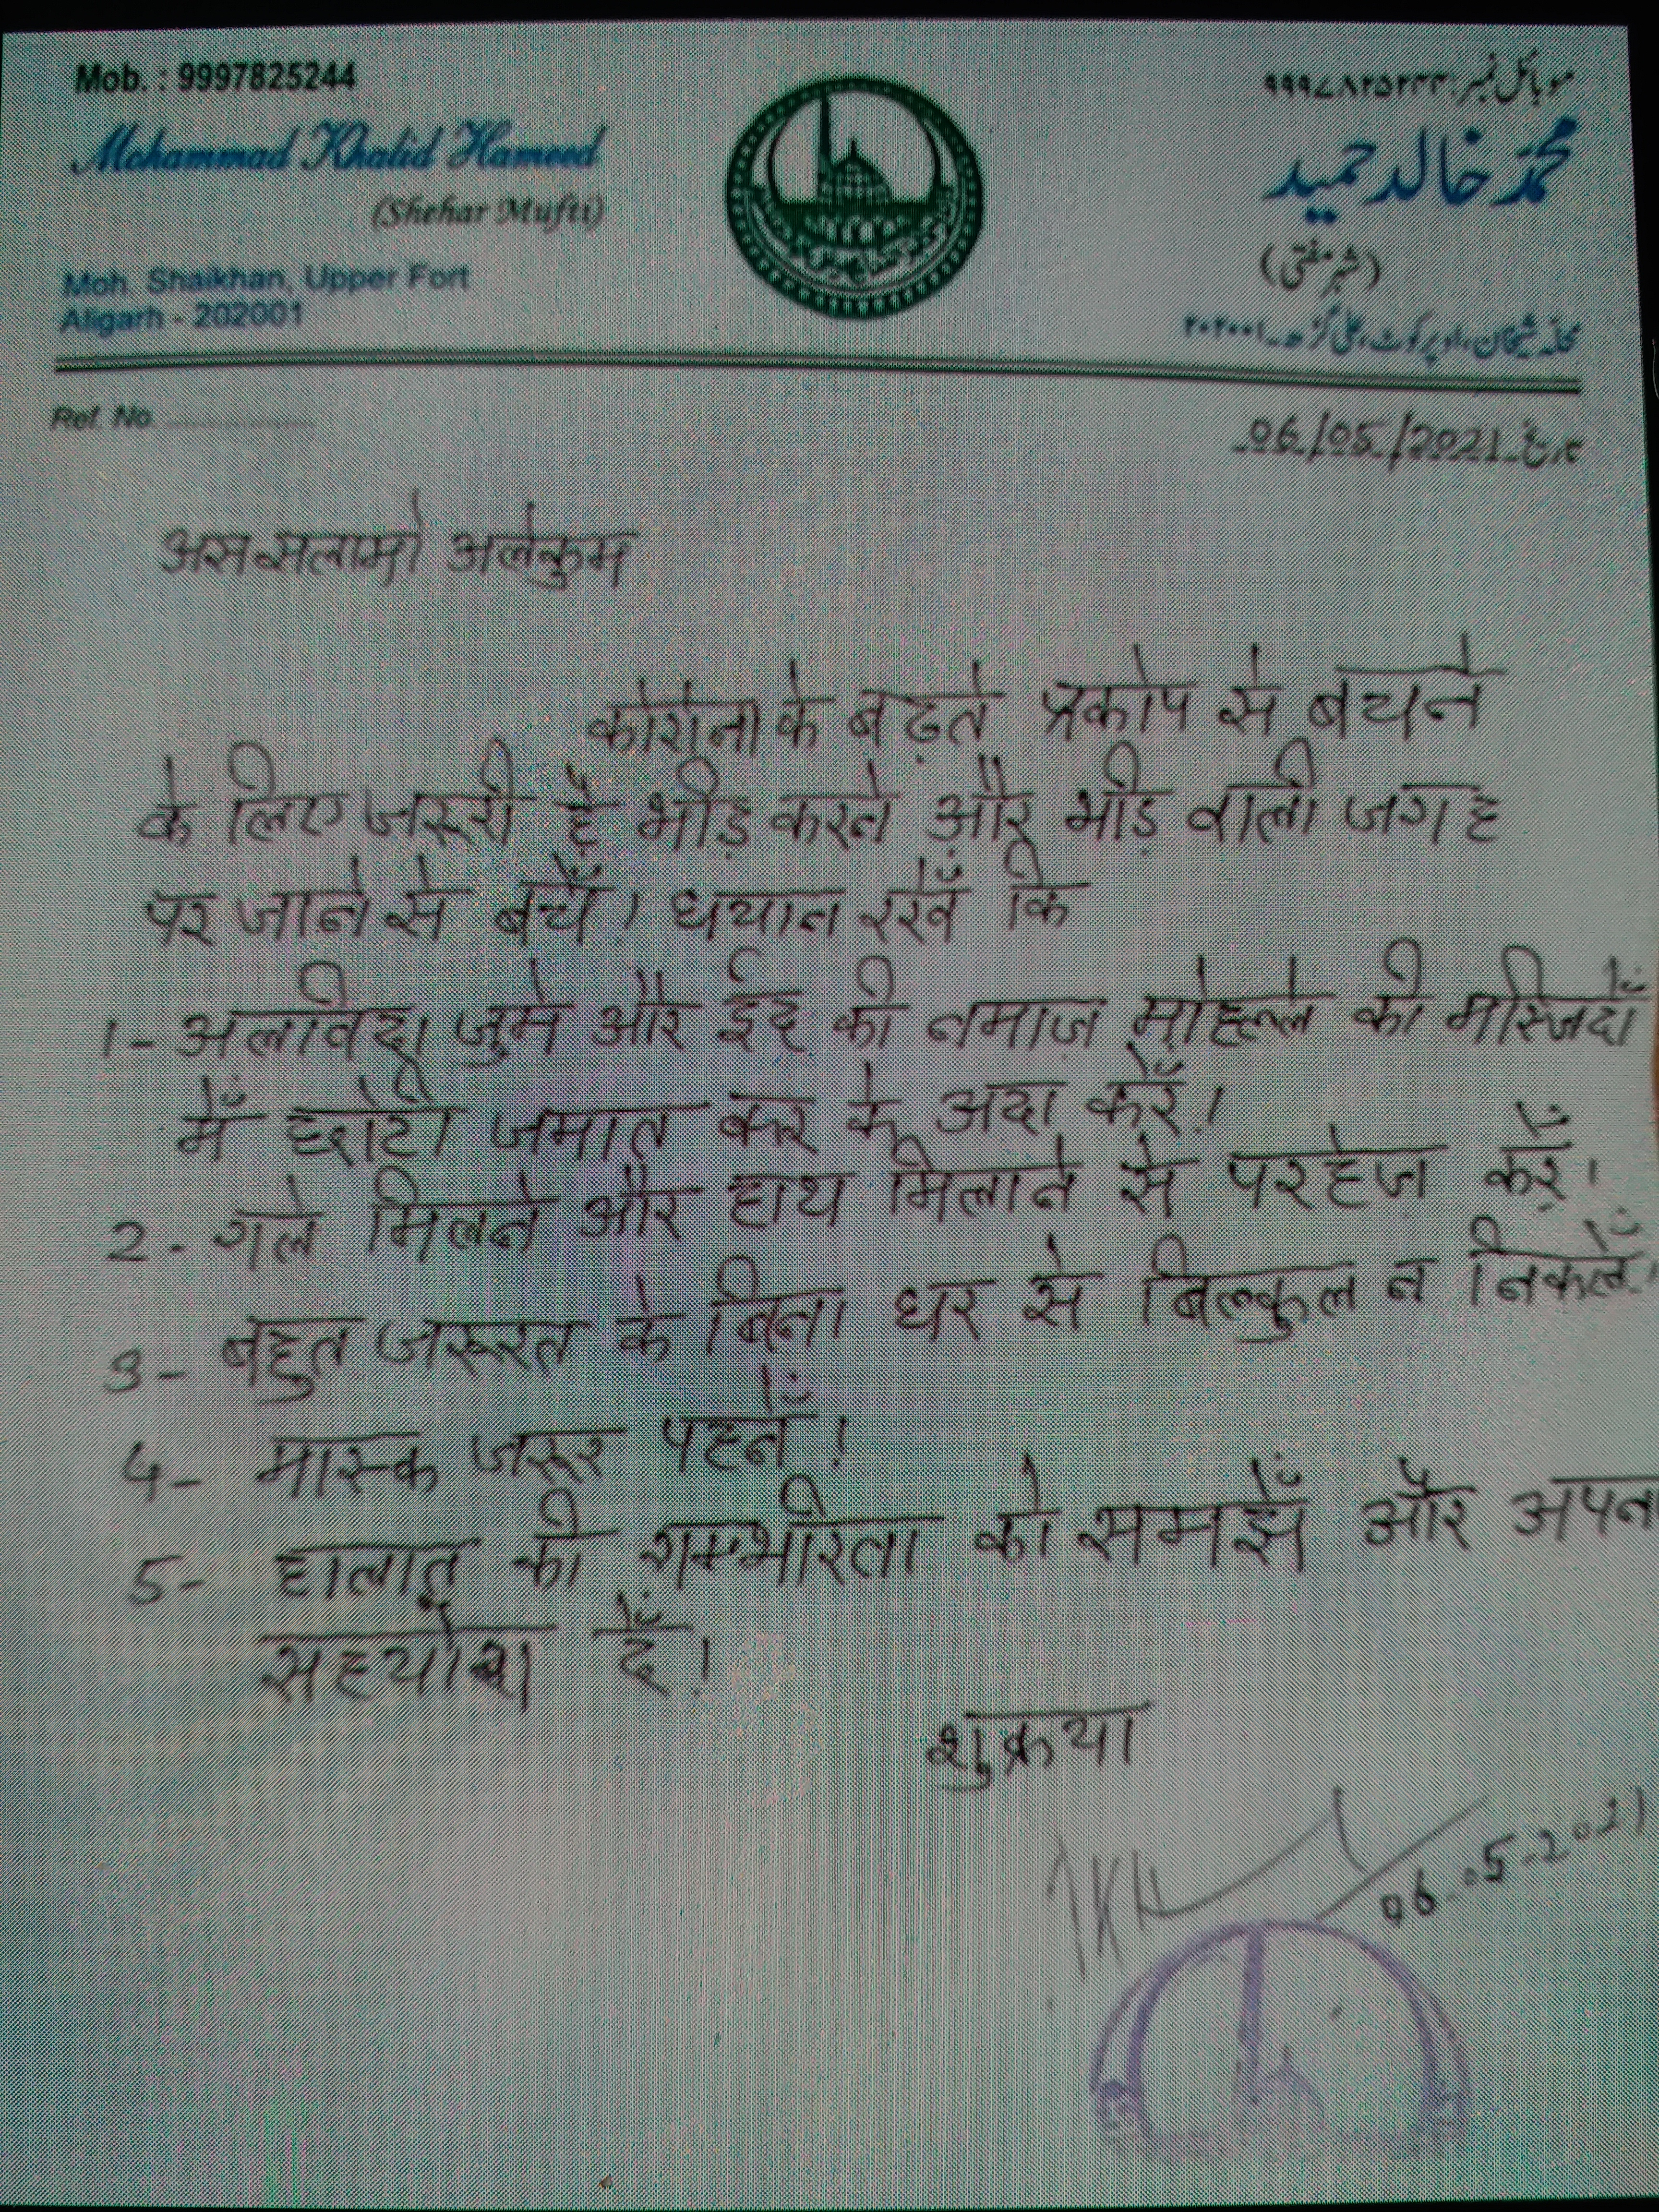 Mob. : 9997825244
Mohammad Khalid Hameed
(Shehar Mufti)
Moh. Shaikhan, Upper Fort
Aligarh - 202001
موبائل نمبر: ۹۹۹۷۸۲۵۲۴۴
محمد خالد حمید
(شہر مفتی)
محلہ شیخان، اوپر کوٹ، علی گڑھ۔ ۲۰۲۰۰۱
Ref. No. ..................
06/05/2021 تاریخ
अससलामो अलेकुम
कोरोना के बढ़ते प्रकोप से बचने
के लिए जरूरी है भीड़ करने और भीड़ वाली जगह
पर जाने से बचें। धयान रखें कि
1- अलविदा जुमे और ईद की नमाज़ मोहल्ले की मस्जिदों
में छोटी जमात कर के अदा करें।
2- गले मिलने और हाथ मिलाने से परहेज़ करें।
3- बहुत जरूरत के बिना घर से बिल्कुल न निकलें।
4- मास्क जरूर पहनें।
5- हालात की गम्भीरता को समझें और अपना
सहयोग दें।
शुक्रया
06-05-2021